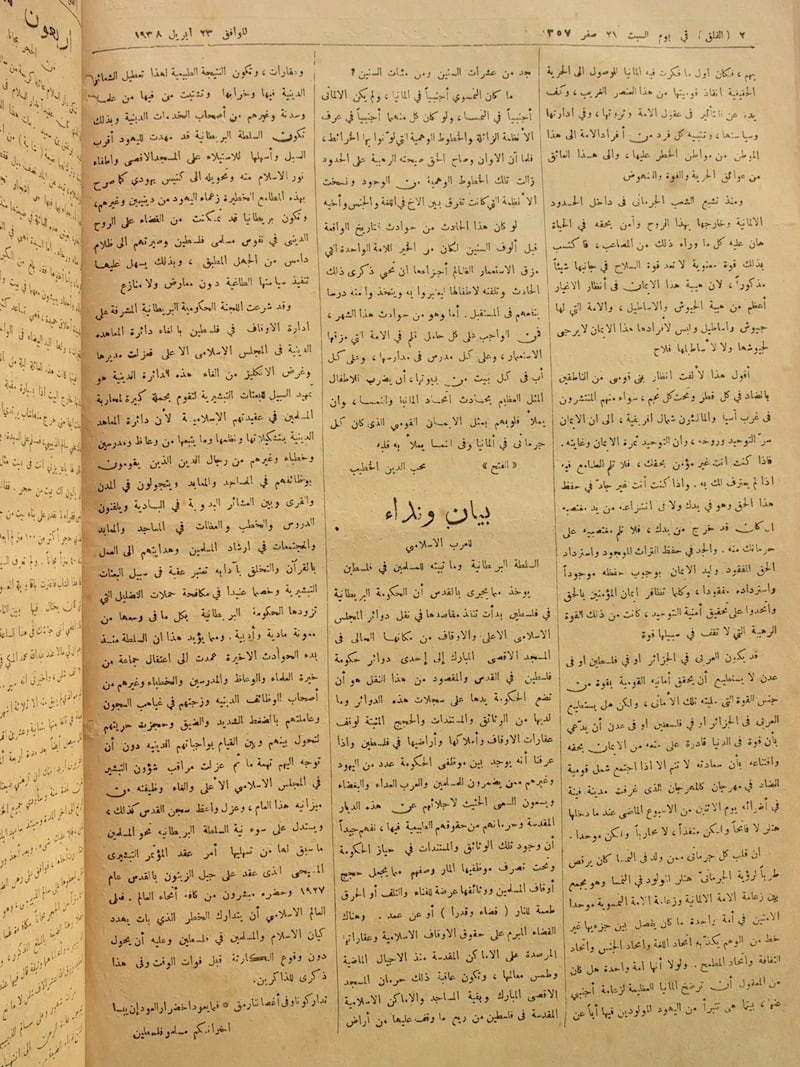 ٢ (الفلق) في يوم السبت ٢١ صفر ١٣٥٧
الموافق ٢٣ ابريل ١٩٣٨
بهم، فكان أول ما فكرت فيه المانيا للوصول الى الحرية
الحقيقية انقاذ قوميتها من هذا العنصر الغريب، وكف
يده عن التأثير في عقول الامة وثروتها، وفي ادارتها
وسياستها، وتنبيه كل فرد من أفراد الامة الى هذا
الموطن من مواطن الخطر عليها، والى هذا العائق
من عوائق الحرية والقوة والنهوض
ومنذ تشبع الشعب الجرماني في داخل الحدود
الالمانية وخارجها بهذا الروح وآمن بحقه في الحياة
هان عليه كل ما وراء ذلك من المصاعب، فاكتسب
بذلك قوة معنوية لا تعد قوة السلاح في جانبها شيئاً
مذكوراً، لان هيبة هذا الايمان في أنظار الاغيار
أعظم من هيبة الجيوش والاساطيل، والامة التي لها
جيوش واساطيل وليس لافرادها هذا الايمان لا يرجى
لجيوشها ولا لأساطيلها فلاح
أقول هذا لألفت انظار بني قومي من الناطقين
بالضاد في كل قطر وتحت كل نجم، سواء منهم المنتشرون
في غرب آسيا والمالئون شمال افريقية، الى ان الايمان
سر التوحيد وروحه، وان التوحيد ثمرة الايمان وغايته.
فاذا كنت انت غير مؤمن بحقك، فلا تلم الطامع فيه
اذا لم يعترف لك به. واذا كنت أنت غير جاد في حفظ
هذا الحق وهو في يدك ولا في انتزاعه من يد مغتصبه
ان كان قد خرج من يدك، فلا تلم مغتصبه على
حرمانك منه. والجد في حفظ التراث الموجود واسترداد
الحق المفقود وليد الايمان بوجوب حفظه موجوداً
واسترداده مفقودا، وكلما تظافر ايمان المؤمنين بالحق
واتحدوا على تحقيق أمنية التوحيد، كانت من ذلك القوة
الرهيبة التي لا تقف في سبيلها قوة
قد يكون العربي في الجزائر أو في فلسطين او في
عدن لا يستطيع أن يحقق أمانيه القومية بقوة من
جنس القوة التي سلبته تلك الأماني، ولكن هل يستطيع
العربي في الجزائر او في فلسطين او في عدن أن يدعي
بأن قوة في الدنيا قادرة على منعه من الايمان بحقه
واقتناعه بأن سعادته لا تتم الا اذا اجتمع شمل قومية
الضاد في مهرجان كالمهرجان الذي غرقت مدينة فينة
في أضوائه يوم الاثنين من الاسبوع الماضي عند ما دخلها
هتلر لا فاتحا ولكن منقذا، لا محاربا ولكن موحدا.
ان قلب كل جرماني ممن ولد في النمسا كان يرقص
طرباً لرؤية الجرماني هتلر المولود في النمسا وهو يجمع
بين زعامة الامة الالمانية وزعامة الامة النمسوية موحدا
الامتين في أمة واحدة ما كان يفصل بين جزءيها غير
خط من الوهم يكذبه اتحاد اللغة واتحاد الجنس واتحاد
الثقافة واتحاد المطمح. ولولا أنها امة واحدة هل كان
من المعقول أن ترضخ المانيا العظيمة لزعامة أجنبي
عنها، بينما هي تتبرأ من اليهود المولودين فيها أباً عن
جد من عشرات السنين ومن مئات السنين؟
ما كان النمسوي أجنبياً في المانيا، ولم يكن الالماني
أجنبياً في النمسا، ولو كان كل منهما أجنبياً في عرف
الأنظمة الزائفة والخطوط الوهمية التي لونوا بها الخرائط،
فلما آن الاوان وصاح الحق صيحته الرهيبة على الحدود
زالت تلك الخطوط الوهمية من الوجود ونسخت
الأنظمة التي كانت تفرق بين الاخ في اللغة والجنس وأخيه
لو كان هذا الحادث من حوادث التاريخ الواقعة
قبل ألوف السنين لكان من الخير للامة الواحدة التي
مزق الاستعمار الظالم أجزاءها ان تحيي ذكرى ذلك
الحادث وتلقنه لاطفالها ليعتبروا به ويتخذوا منه درسا
ينفعهم في المستقبل. أما وهو من حوادث هذا الشهر،
فمن الواجب على كل حامل قلم في الامة التي مزقها
الاستعمار، وعلى كل مدرس في مدارسها، وعلى كل
أب في كل بيت من بيوتها، أن يضرب للاطفال
المثل العظيم بحادث اتحاد المانيا والنمسا، وان
يملأ قلوبهم بمثل الايمان القومي الذي كان كل
جرماني في المانيا وفي النمسا يملأ به قلبه
« الفتح » محب الدين الخطيب
بيان ونداء
للعرب الاسلامي
السلطة البريطانية وما تبيته للمسلمين في فلسطين
يؤخذ مما يجري بالقدس أن الحكومة البريطانية
في فلسطين بدأت تنفذ مقاصدها في نقل دوائر المجلس
الاسلامي الاعلى والاوقاف من مكانهما الحالي في
المسجد الاقصى المبارك إلى إحدى دوائر حكومة
فلسطين في القدس والمقصود من هذا النقل هو أن
تضع الحكومة يدها على سجلات هذه الدوائر وما
لديها من الوثائق والمستندات والحجج المثبتة لوقف
عقارات الاوقاف وأملاكها وأراضيها في فلسطين واذا
عرفنا أنه يوجد بين موظفي الحكومة عدد من اليهود
وغيرهم ممن يضمرون للمسلمين والعرب العداء والبغضاء
ويسعون السعي الحثيث لاجلائهم عن هذه الديار
المقدسة وحرمانهم من حقوقهم الطبيعية فيها، نفهم جيداً
أن وجود تلك الوثائق والمستندات في حياز الحكومة
وتحت تصرف موظفيها المار وصفهم مما يجعل حجج
أوقاف المسلمين ووثائقها عرضة للفناء والتلف أو الحرق
طعمة للنار ( قضاء وقدرا ) أو عن عمد. وهناك
القضاء المبرم على حقوق الاوقاف الاسلامية وعقاراتها
المرصدة على الاماكن المقدسة منذ الاجيال الماضية
وطمس معالمها، وتكون عاقبة ذلك حرمان المسجد
الاقصى المبارك وبقية المساجد والاماكن الاسلامية
المقدسة في فلسطين من ريع ما وقف عليها من أراض
وعقارات، وتكون النتيجة الطبيعية لهذا تعطيل الشعائر
الدينية فيها وخرابها وتشتيت من فيها من علماء
وسدنة وغيرهم من أصحاب الخدمات الدينية وبذلك
تكون السلطة البريطانية قد مهدت لليهود أقرب
السبل وأسهلها للاستيلاء على المسجد الاقصى واطفاء
نور الاسلام منه وتحويله الى كنيس يهودي كما صرح
بهذه المطامع الخطيرة زعماء اليهود من دينيين وغيرهم،
وتكون بريطانيا قد تمكنت من القضاء على الروح
الديني في نفوس مسلمي فلسطين وصيرتهم الى ظلام
دامس من الجهل المطبق، وبذلك يسهل عليها
تنفيذ سياستها الطاغية دون معارض ولا منازع
وقد شرعت اللجنة الحكومية البريطانية المشرفة على
ادارة الاوقاف في فلسطين بالغاء دائرة المعاهد
الدينية في المجلس الاسلامي الاعلى فعزلت مديرها
وغرض الانكليز من الغاء هذه الدائرة الدينية هو
تمهيد السبيل للبعثات التبشيرية لتقوم بحملة كبيرة لمحاربة
المسلمين في عقيدتهم الاسلامية لأن دائرة المعاهد
الدينية بتشكيلاتها ونظمها وما يتبعها من وعاظ ومدرسين
وخطباء وغيرهم من رجال الدين الذين يقومون
بوظائفهم في المساجد والمعابد ويتجولون في المدن
والقرى وبين العشائر البدوية في البادية ويلقنون
الدروس والخطب والعظات في المساجد والمعابد
والمجتمعات في ارشاد المسلمين وهدايتهم الى العمل
بالقرآن والتخلق بآدابه تعتبر عقبة في سبيل البعثات
التبشيرية وخصما عنيدا في مكافحة حملات التضليل التي
تزودها الحكومة البريطانية بكل ما في وسعها من
معونة مادية وأدبية. ومما يؤيد هذا ان السلطة منذ
بدء الحوادث الاخيرة عمدت الى اعتقال جماعة من
خيرة العلماء والوعاظ والمدرسين والخطباء وغيرهم من
أصحاب الوظائف الدينية وزجتهم في غياهب السجون
وعاملتهم بالضغط الشديد والضيق وحجزت حريتهم
لتحول بينهم وبين القيام بواجباتهم الدينية دون أن
توجه اليهم تهمة ما ثم عزلت مراقب شؤون التبشير
في المجلس الاسلامي الأعلى والغاء وظيفته من
ميزانية هذا العام، وعزل واعظ سجن القدس كذلك،
ويستدل على سوء نية السلطة البريطانية نحو المسلمين
ما سبق لها من تسهيلها أمر عقد المؤتمر التبشيري
المسيحي الذي عقد على جبل الزيتون بالقدس عام
١٩٢٧ وحضره مبشرون من كافة أنحاء العالم. فعلى
العالم الاسلامي أن يتدارك الخطر الذي بات يهدد
كيان الاسلام والمسلمين في فلسطين وعليه أن يحول
دون وقوع الكارثة قبل فوات الوقت وفي هذا
ذكرى للذاكرين.
تداركونا وفي أغصاننا رمق * فما يعود اخضرار العود إن يبسا
اخوانكم مسلمو فلسطين